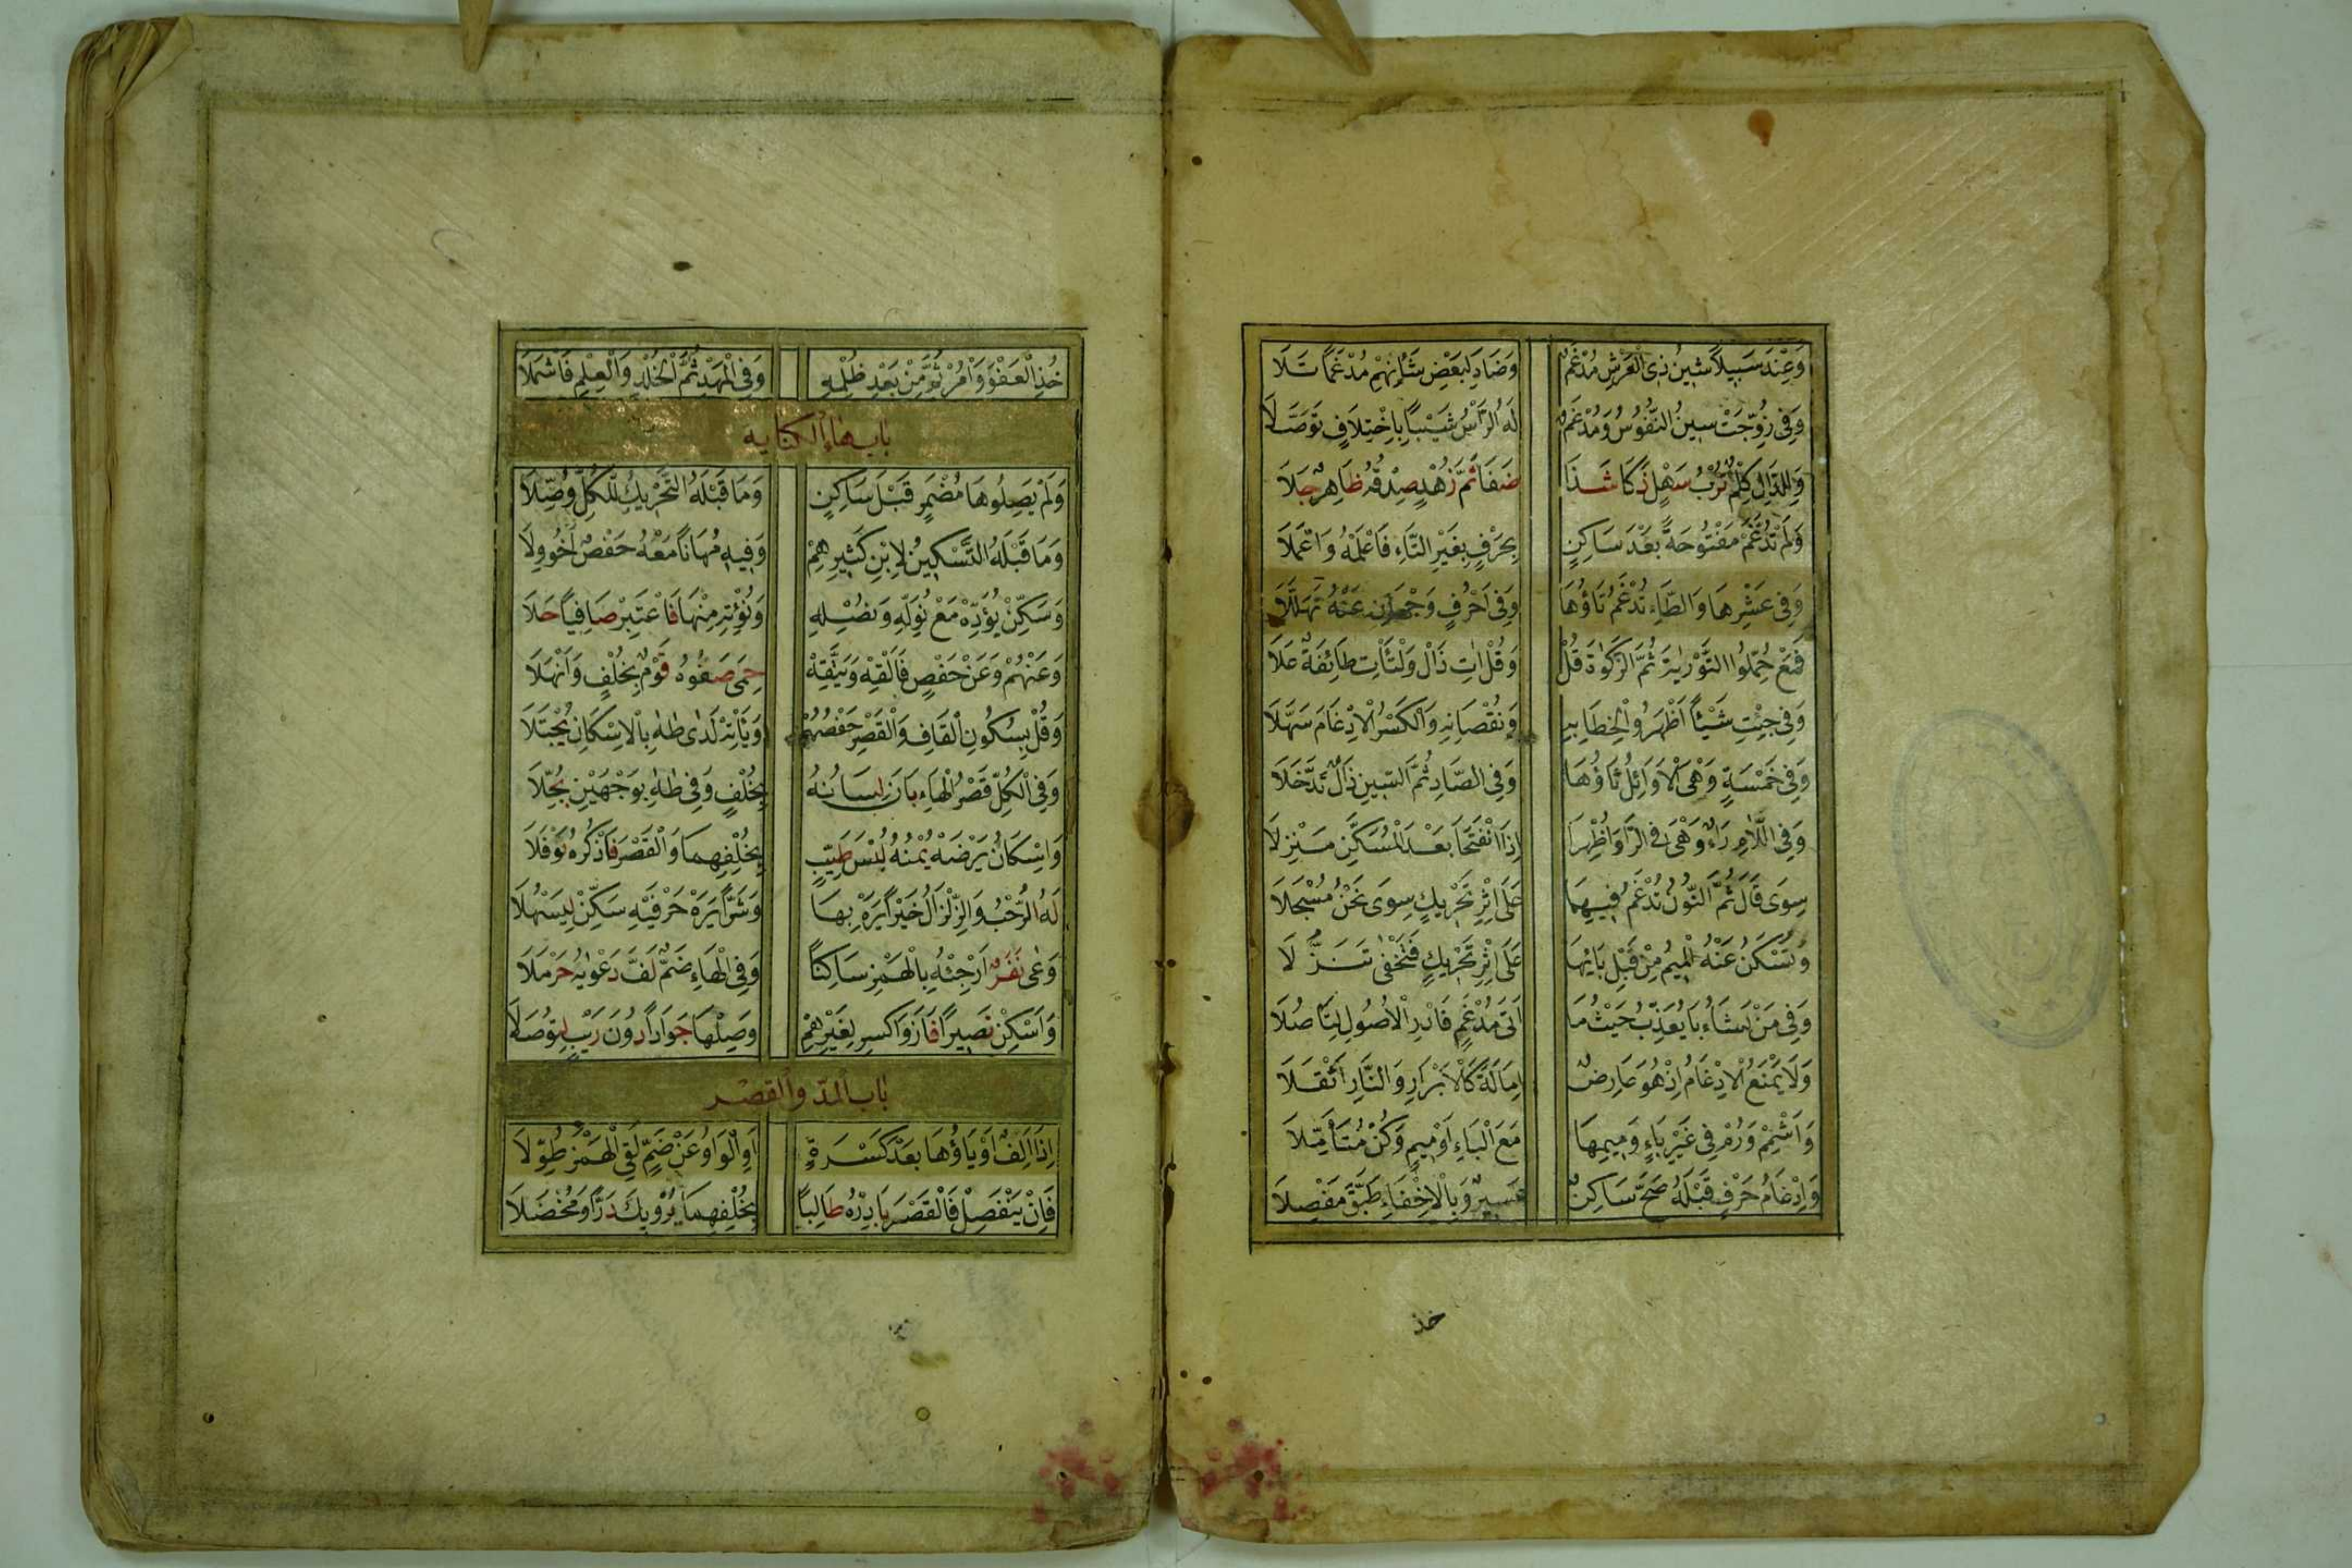 وَعِنْدَ سَبِيلاً شِينُ ذِى الْعَرْشِ مُدْغَمٌ وَضَادَ لِبَعْضِ شَأْنِهِمْ مُدْغَمًا تَلَا
وَفِى زُوِّجَتْ سِينُ النُّفُوسُ وَمُدْغَمٌ لَهُ الرَّأْسُ شَيْبًا بِاِخْتِلَافٍ تَوَصَّلَا
وَلِلدَّالِ كِلْمٌ تُرْبُ سَهْلٍ ذَكَا شَذًا ضَفَا ثُمَّ زُهْدٍ صِدْقُهُ ظَاهِرٌ جَلَا
وَلَمْ تُدْغَمْ مَفْتُوحَةً بَعْدَ سَاكِنٍ بِحَرْفٍ بِغَيْرِ التَّاءِ فَاعْلَمْهُ وَاعْمَلَا
وَفِى عَشْرِهَا وَالطَّاءِ تُدْغَمُ تَاؤُهَا وَفِى اَحْرُفٍ وَجْهَانِ عَنْهُ تَهَلَّلَا
فَمَعْ حُمِّلُوا التَّوْرٰيةَ ثُمَّ الزَّكٰوةَ قُلْ وَقُلْ اٰتِ ذَالْ وَلْتَأْتِ طَائِفَةٌ عَلَا
وَفِى جِئْتِ شَيْئًا اَظْهَرُوا لِخِطَابِهِ وَنُقْصَانِهِ وَالْكَسْرُ الْاِدْغَامَ سَهَّلَا
وَفِى خَمْسَةٍ وَهْىَ الْاَوَائِلُ ثَاؤُهَا وَفِى الصَّادِ ثُمَّ السِّينِ ذَالٌ تَدَخَّلَا
وَفِى اللَّامِ رَاءٌ وَهْىَ فِى الرَّا وَاُظْهِرَا اِذَا انْفَتَحَا بَعْدَ الْمُسَكَّنِ مَنْزِلَا
سِوَى قَالَ ثُمَّ النُّونُ تُدْغَمُ فِيهِمَا عَلَى اِثْرِ تَحْرِيكٍ سِوَى نَحْنُ مُسْجَلَا
وَتُسْكَنُ عَنْهُ الْمِيمُ مِنْ قَبْلِ بَائِهَا عَلَى اِثْرِ تَحْرِيكٍ فَتَخْفٰى تَنَزُّلَا
وَفِى مَنْ يَشَاءُ بَا يُعَذِّبُ حَيْثُ مَا اَتَى مُدْغَمٌ فَادْرِ الْاُصُولَ لِتَأْصُلَا
وَلَا يَمْنَعُ الْاِدْغَامُ اِذْ هُوَ عَارِضٌ اِمَالَةَ كَالْاَبْرَارِ وَالنَّارِ اَثْقَلَا
وَاَشْمِمْ وَرُمْ فِى غَيْرِ بَاءٍ وَمِيمِهَا مَعَ الْبَاءِ اَوْ مِيمٍ وَكُنْ مُتَأَمِّلَا
وَاِدْغَامُ حَرْفٍ قَبْلَهُ صَحَّ سَاكِنٌ عَسِيرٌ وَبِالْاِخْفَاءِ طَبَّقَ مَفْصِلَا
خذ
خُذِ الْعَفْوَ وَأْمُرْ ثُمَّ مِنْ بَعْدِ ظُلْمِهِ وَفِى الْمَهْدِ ثُمَّ الْخُلْدِ وَالْعِلْمِ فَاشْمَلَا
باب هاء الكنايه
وَلَمْ يَصِلُوا هَا مُضْمَرٍ قَبْلَ سَاكِنٍ وَمَا قَبْلَهُ التَّحْرِيكُ لِلْكُلِّ وُصِّلَا
وَمَا قَبْلَهُ التَّسْكِينُ لِابْنِ كَثِيرِهِمْ وَفِيهِ مُهَانًا مَعْهُ حَفْصٌ اَخُو وِلَا
وَسَكِّنْ يُؤَدِّهْ مَعْ نُوَلِّهِ وَنُصْلِهِ وَنُؤْتِهِ مِنْهَا فَاعْتَبِرْ صَافِيًا حَلَا
وَعَنْهُمْ وَعَنْ حَفْصٍ فَاَلْقِهْ وَيَتَّقِهْ حِمَى صَفْوُهُ قَوْمٌ بِخُلْفٍ وَاَنْهَلَا
وَقُلْ بِسُكُونِ الْقَافِ وَالْقَصْرِ حَفْصُهُمْ وَيَأْتِهْ لَدٰى طٰهٰ بِالْاِسْكَانِ يُجْتَلَا
وَفِى الْكُلِّ قَصْرُ الْهَاءِ بَانَ لِسَانُهُ بِخُلْفٍ وَفِى طٰهٰ بِوَجْهَيْنِ بُجِّلَا
وَاِسْكَانُ يَرْضَهْ يُمْنُهُ لُبْسُ طَيِّبٍ بِخُلْفِهِمَا وَالْقَصْرَ فَاذْكُرْهُ نَوْفَلَا
لَهُ الرُّحْبُ وَالزِّلْزَالُ خَيْرًا يَرَهْ بِهَا وَشَرًّا يَرَهْ حَرْفَيْهِ سَكِّنْ لِيَسْهُلَا
وَعٰى نَفَرٌ اَرْجِئْهُ بِالْهَمْزِ سَاكِنًا وَفِى الْهَاءِ ضَمٌّ لَفَّ دَعْوٰيهُ حَرْمَلَا
وَاَسْكِنْ نَصِيرًا فَازَ وَاكْسِرْ لِغَيْرِهِمْ وَصِلْهَا جَوَادًا دُونَ رَيْبٍ لِتُوصَلَا
باب المدّ والقصر
اِذَا اَلِفٌ اَوْ يَاؤُهَا بَعْدَ كَسْرَةٍ اَوِ الْوَاوُ عَنْ ضَمٍّ لَقِى الْهَمْزَ طُوِّلَا
فَاِنْ يَنْفَصِلْ فَالْقَصْرَ بَادِرْهُ طَالِبًا بِخُلْفِهِمَا يُرْوِيكَ دَرًّا وَمُخْضَلَا